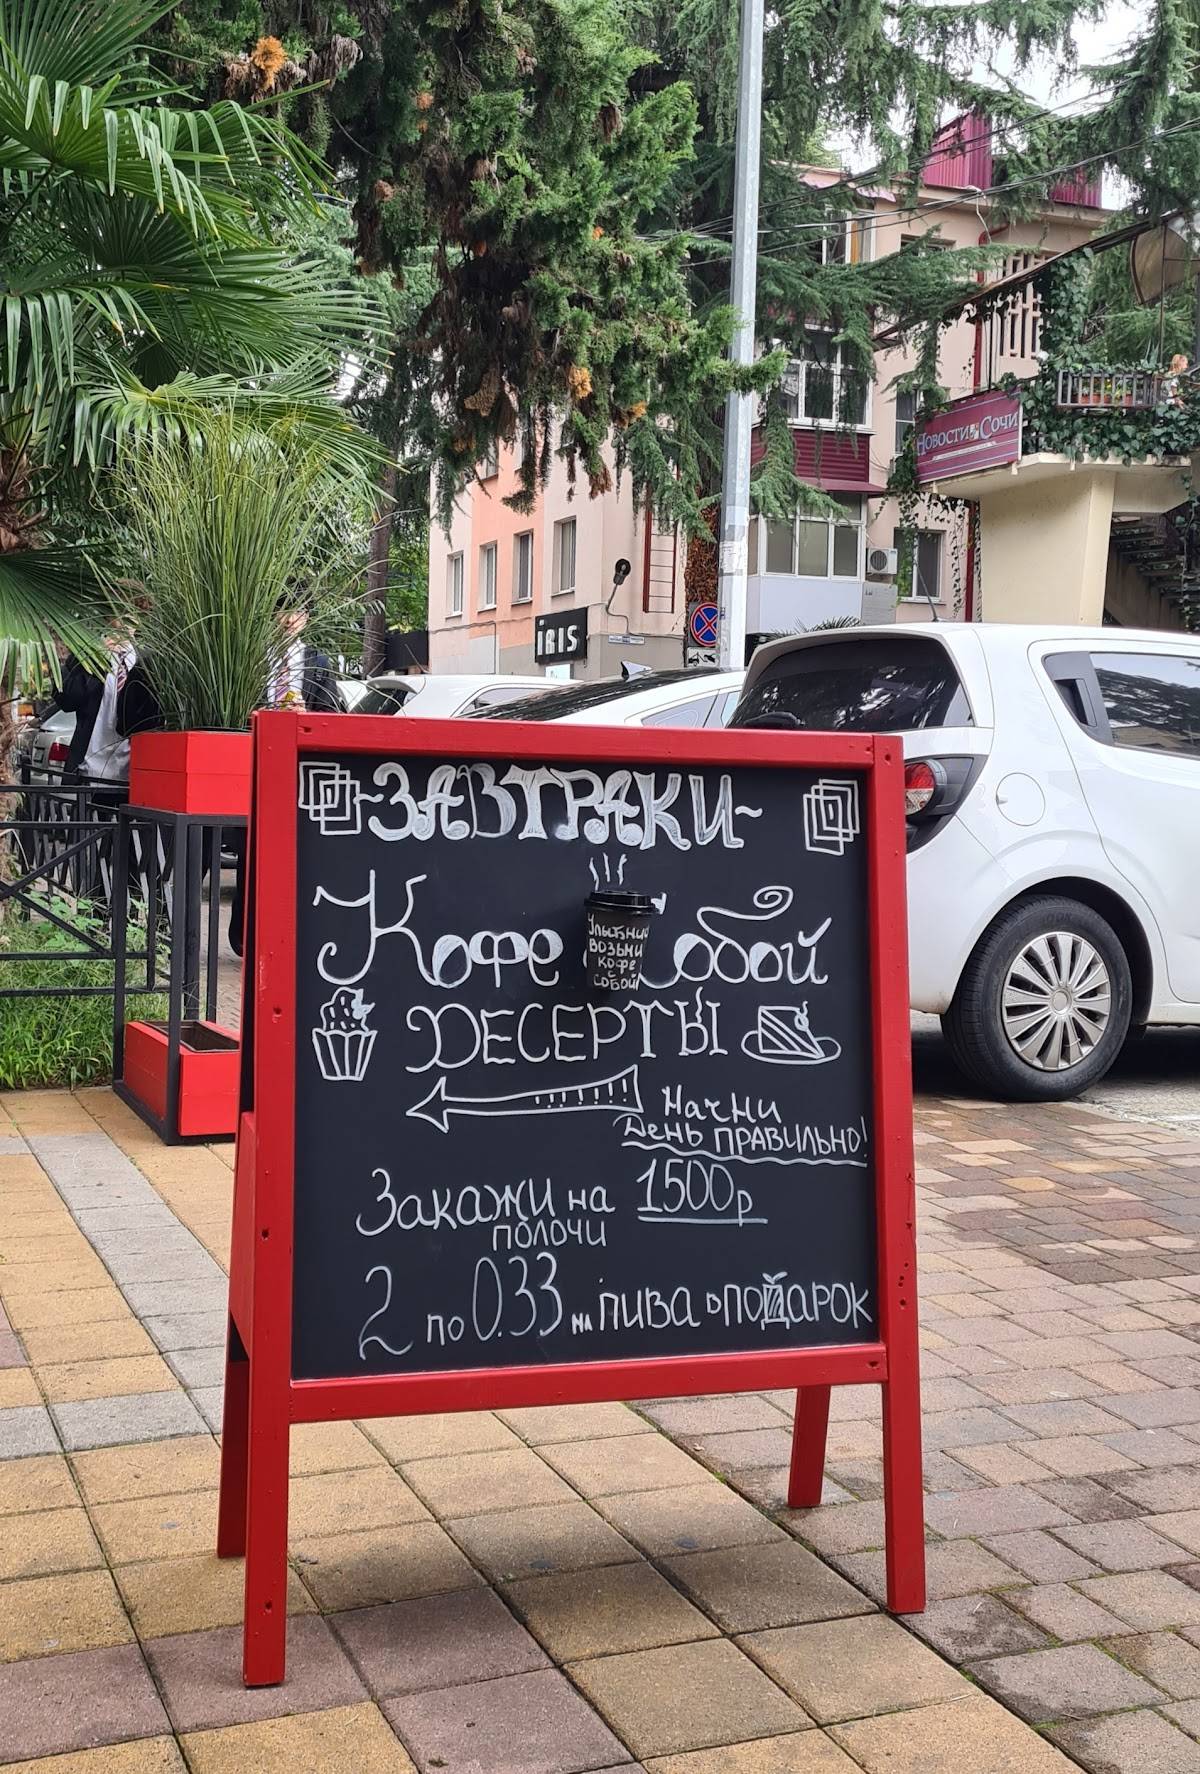 Новости Сочи
IRIS
~ЗАВТРАКИ~
Кофе с собой
Улыбнись
возьми
кофе
с
собой!
ДЕСЕРТЫ
Начни
День ПРАВИЛЬНО!
Закажи на 1500р
получи
2 по 0.33 пива в подарок